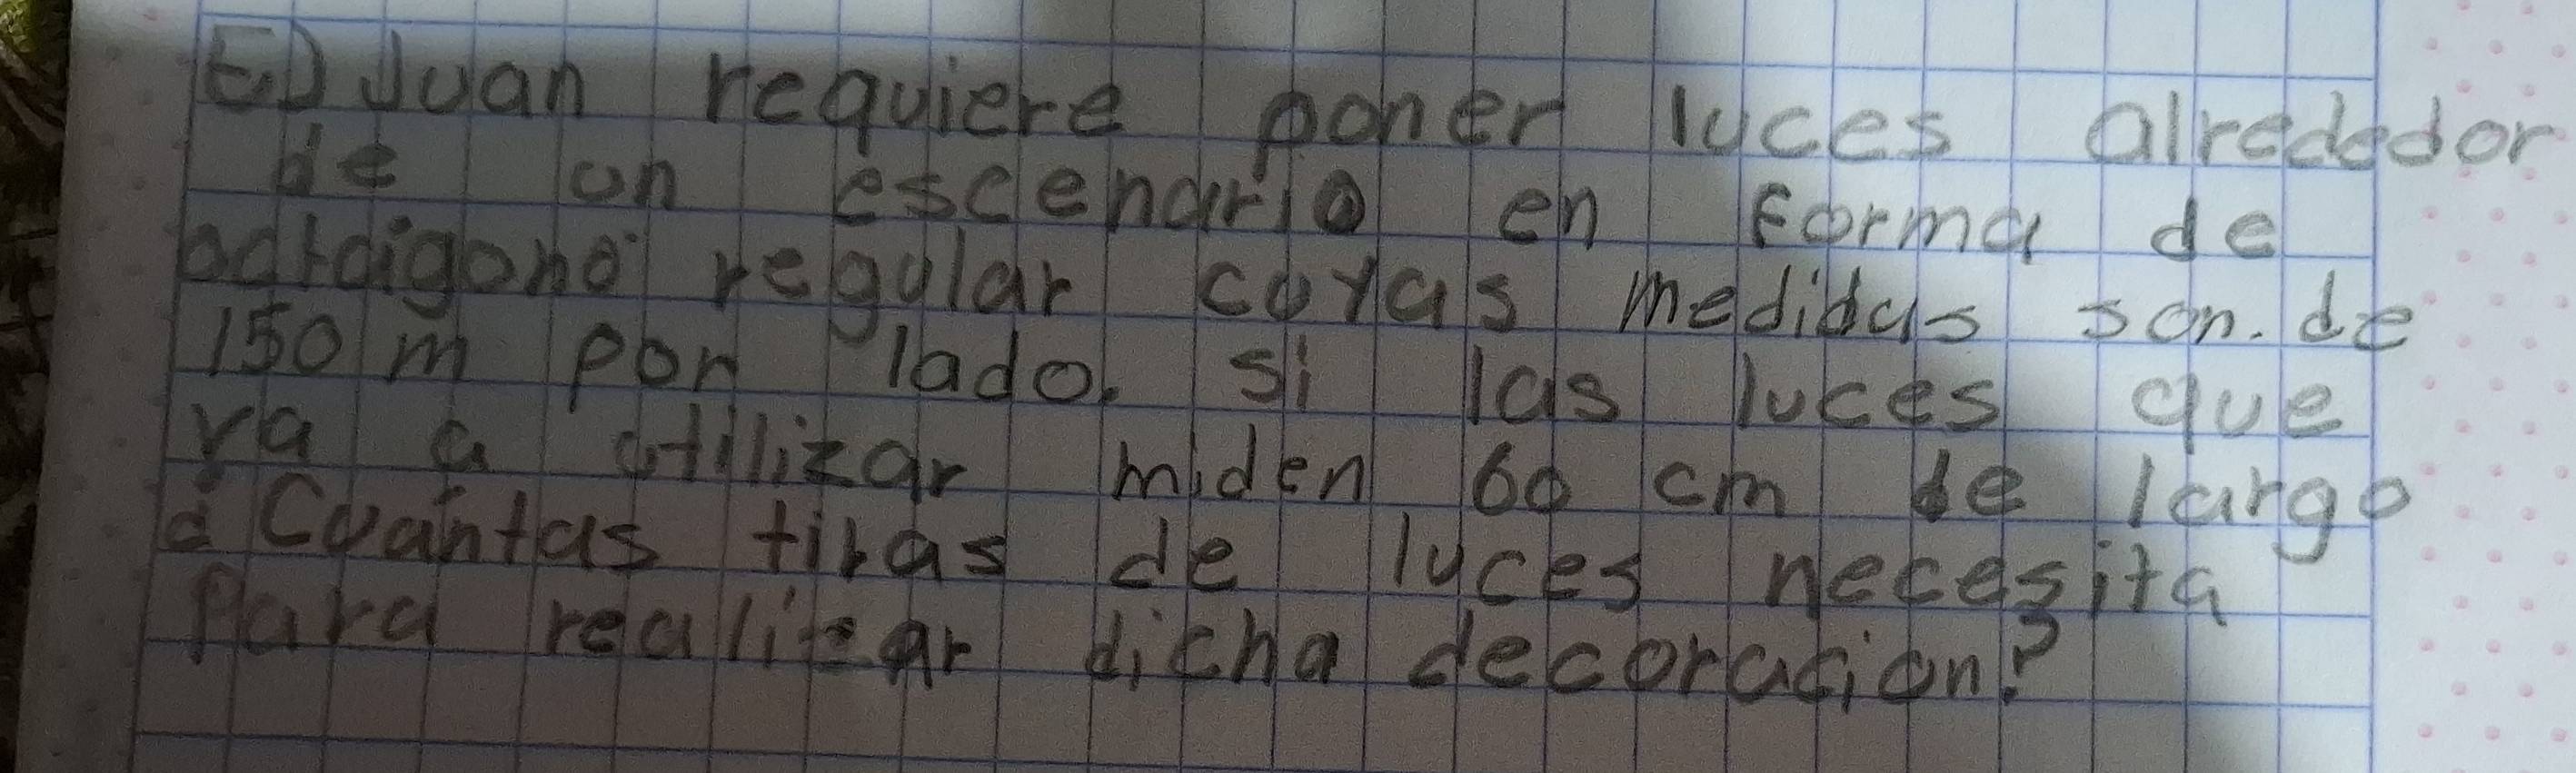 E) Juan requiere poner luces alrededor
de un escenario en Forma de
octoigono regular cuyas medidas son. de
150 m por lado. si las luces que
va a utilizar miden 60 cm de largo
¿Cuántas tiras de luces necesita
Para realizar dicha decoración?